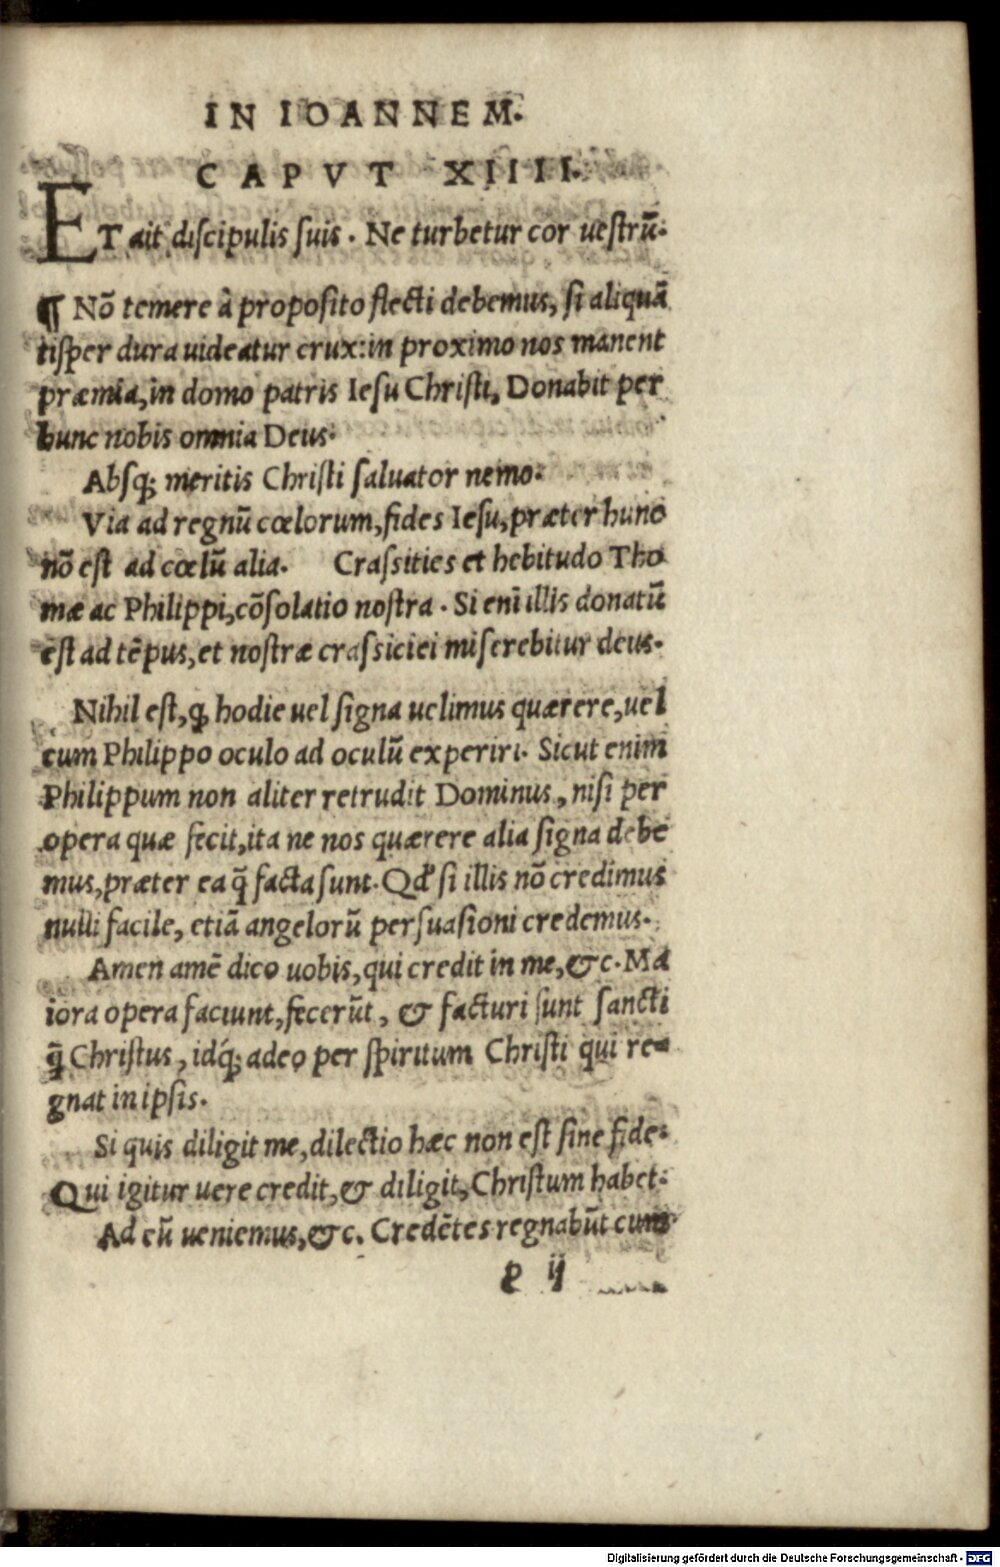 IN IOANNEM.
CAPVT XIIII.
ET ait diſcipulis ſuis. Ne turbetur cor ueſtrū.
¶ Nō temere à propoſito flecti debemus, ſi aliquā
tiſper dura uideatur crux: in proximo nos manent
præmia, in domo patris Ieſu Chriſti, Donabit per
hunc nobis omnia Deus.
Abſq; meritis Chriſti ſaluator nemo.
Via ad regnū cœlorum, fides Ieſu, præter hunc
nō eſt ad cœlū alia. Craſsities et hebitudo Tho
mæ ac Philippi, cōſolatio noſtra. Si enī illis donatū
eſt ad tēpus, et noſtræ craſsiciei miſerebitur deus.
Nihil eſt, ꝙ hodie uel ſigna uelimus quærere, uel
cum Philippo oculo ad oculū experiri. Sicut enim
Philippum non aliter retrudit Dominus, niſi per
opera quæ fecit, ita ne nos quærere alia ſigna debe
mus, præter ea q̄ facta ſunt. Qd' ſi illis nō credimus
nulli facile, etiā angelorū perſuaſioni credemus.
Amen amē dico uobis, qui credit in me, &c. Ma
iora opera faciunt, fecerūt, & facturi ſunt ſancti
q̄ Chriſtus, idq́; adeo per ſpiritum Chriſti qui re-
gnat in ipſis.
Si quis diligit me, dilectio hæc non eſt ſine fide.
Qui igitur uere credit, & diligit, Chriſtum habet.
Ad eū ueniemus, &c. Credētes regnabūt cum
P ij
Digitalisierung gefördert durch die Deutsche Forschungsgemeinschaft - DFG